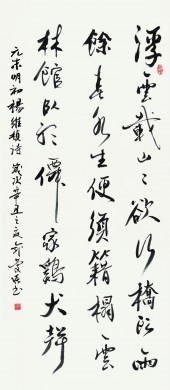 浮雲載山々欲行橋頭雨
餘春水生便須籍榻雲
林館臥聽僊家鷄犬聲
元末明初楊維楨詩 歲次辛丑之夏 書